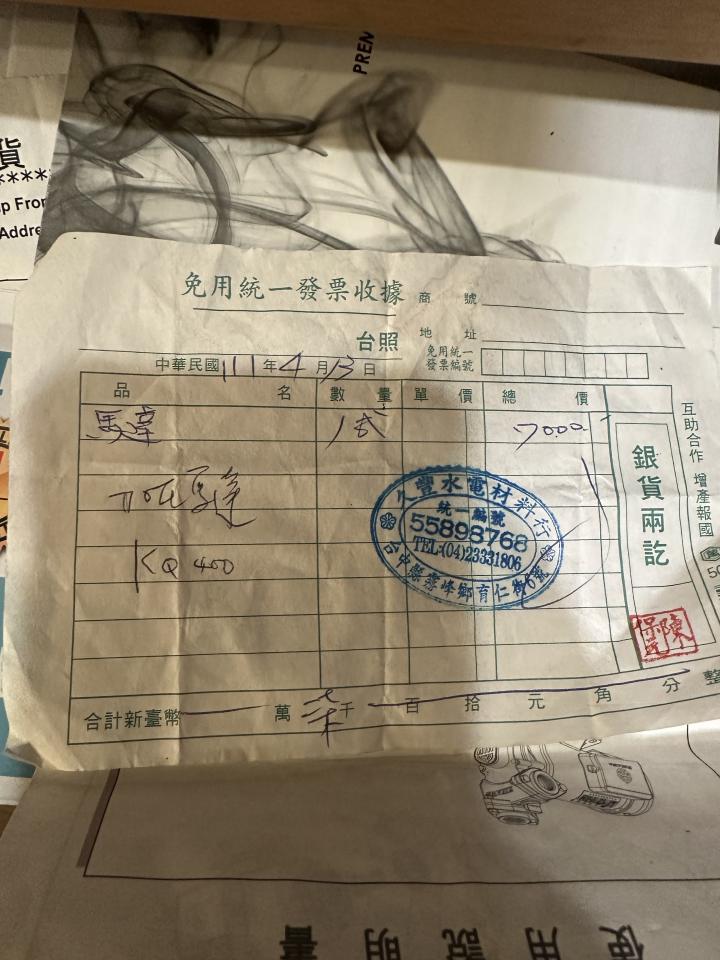 PREM
貨
*****
p Fro
Addre
免用統一發票收據
商號
台照
地址
免用統一
發票編號
中華民國111年4月13日
品名 數量 單價 總價
馬達 1式 7000
KQ 400
久豐水電材料行
統一編號
55898768
TEL:(04)23331806
台中縣霧峰鄉育仁街6號
銀貨兩訖
互助合作 增產報國
合計新臺幣 萬 柒千 百 拾 元 角 分 整
使用說明書